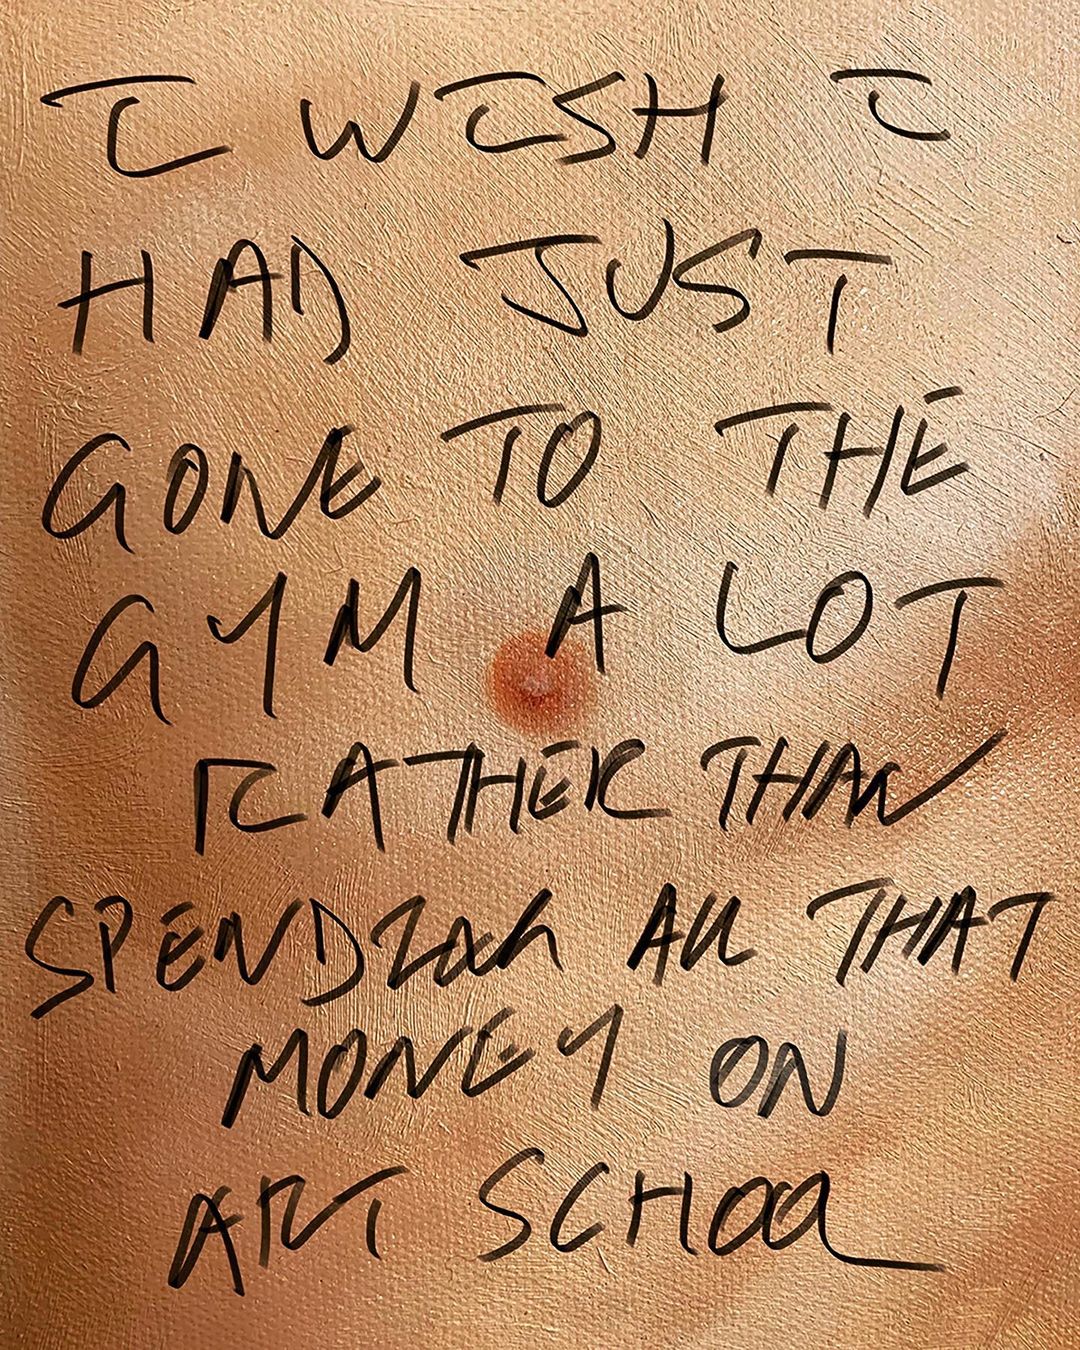 I WISH I
HAD JUST
GONE TO THE
GYM A LOT
RATHER THAN
SPENDING ALL THAT
MONEY ON
ART SCHOOL